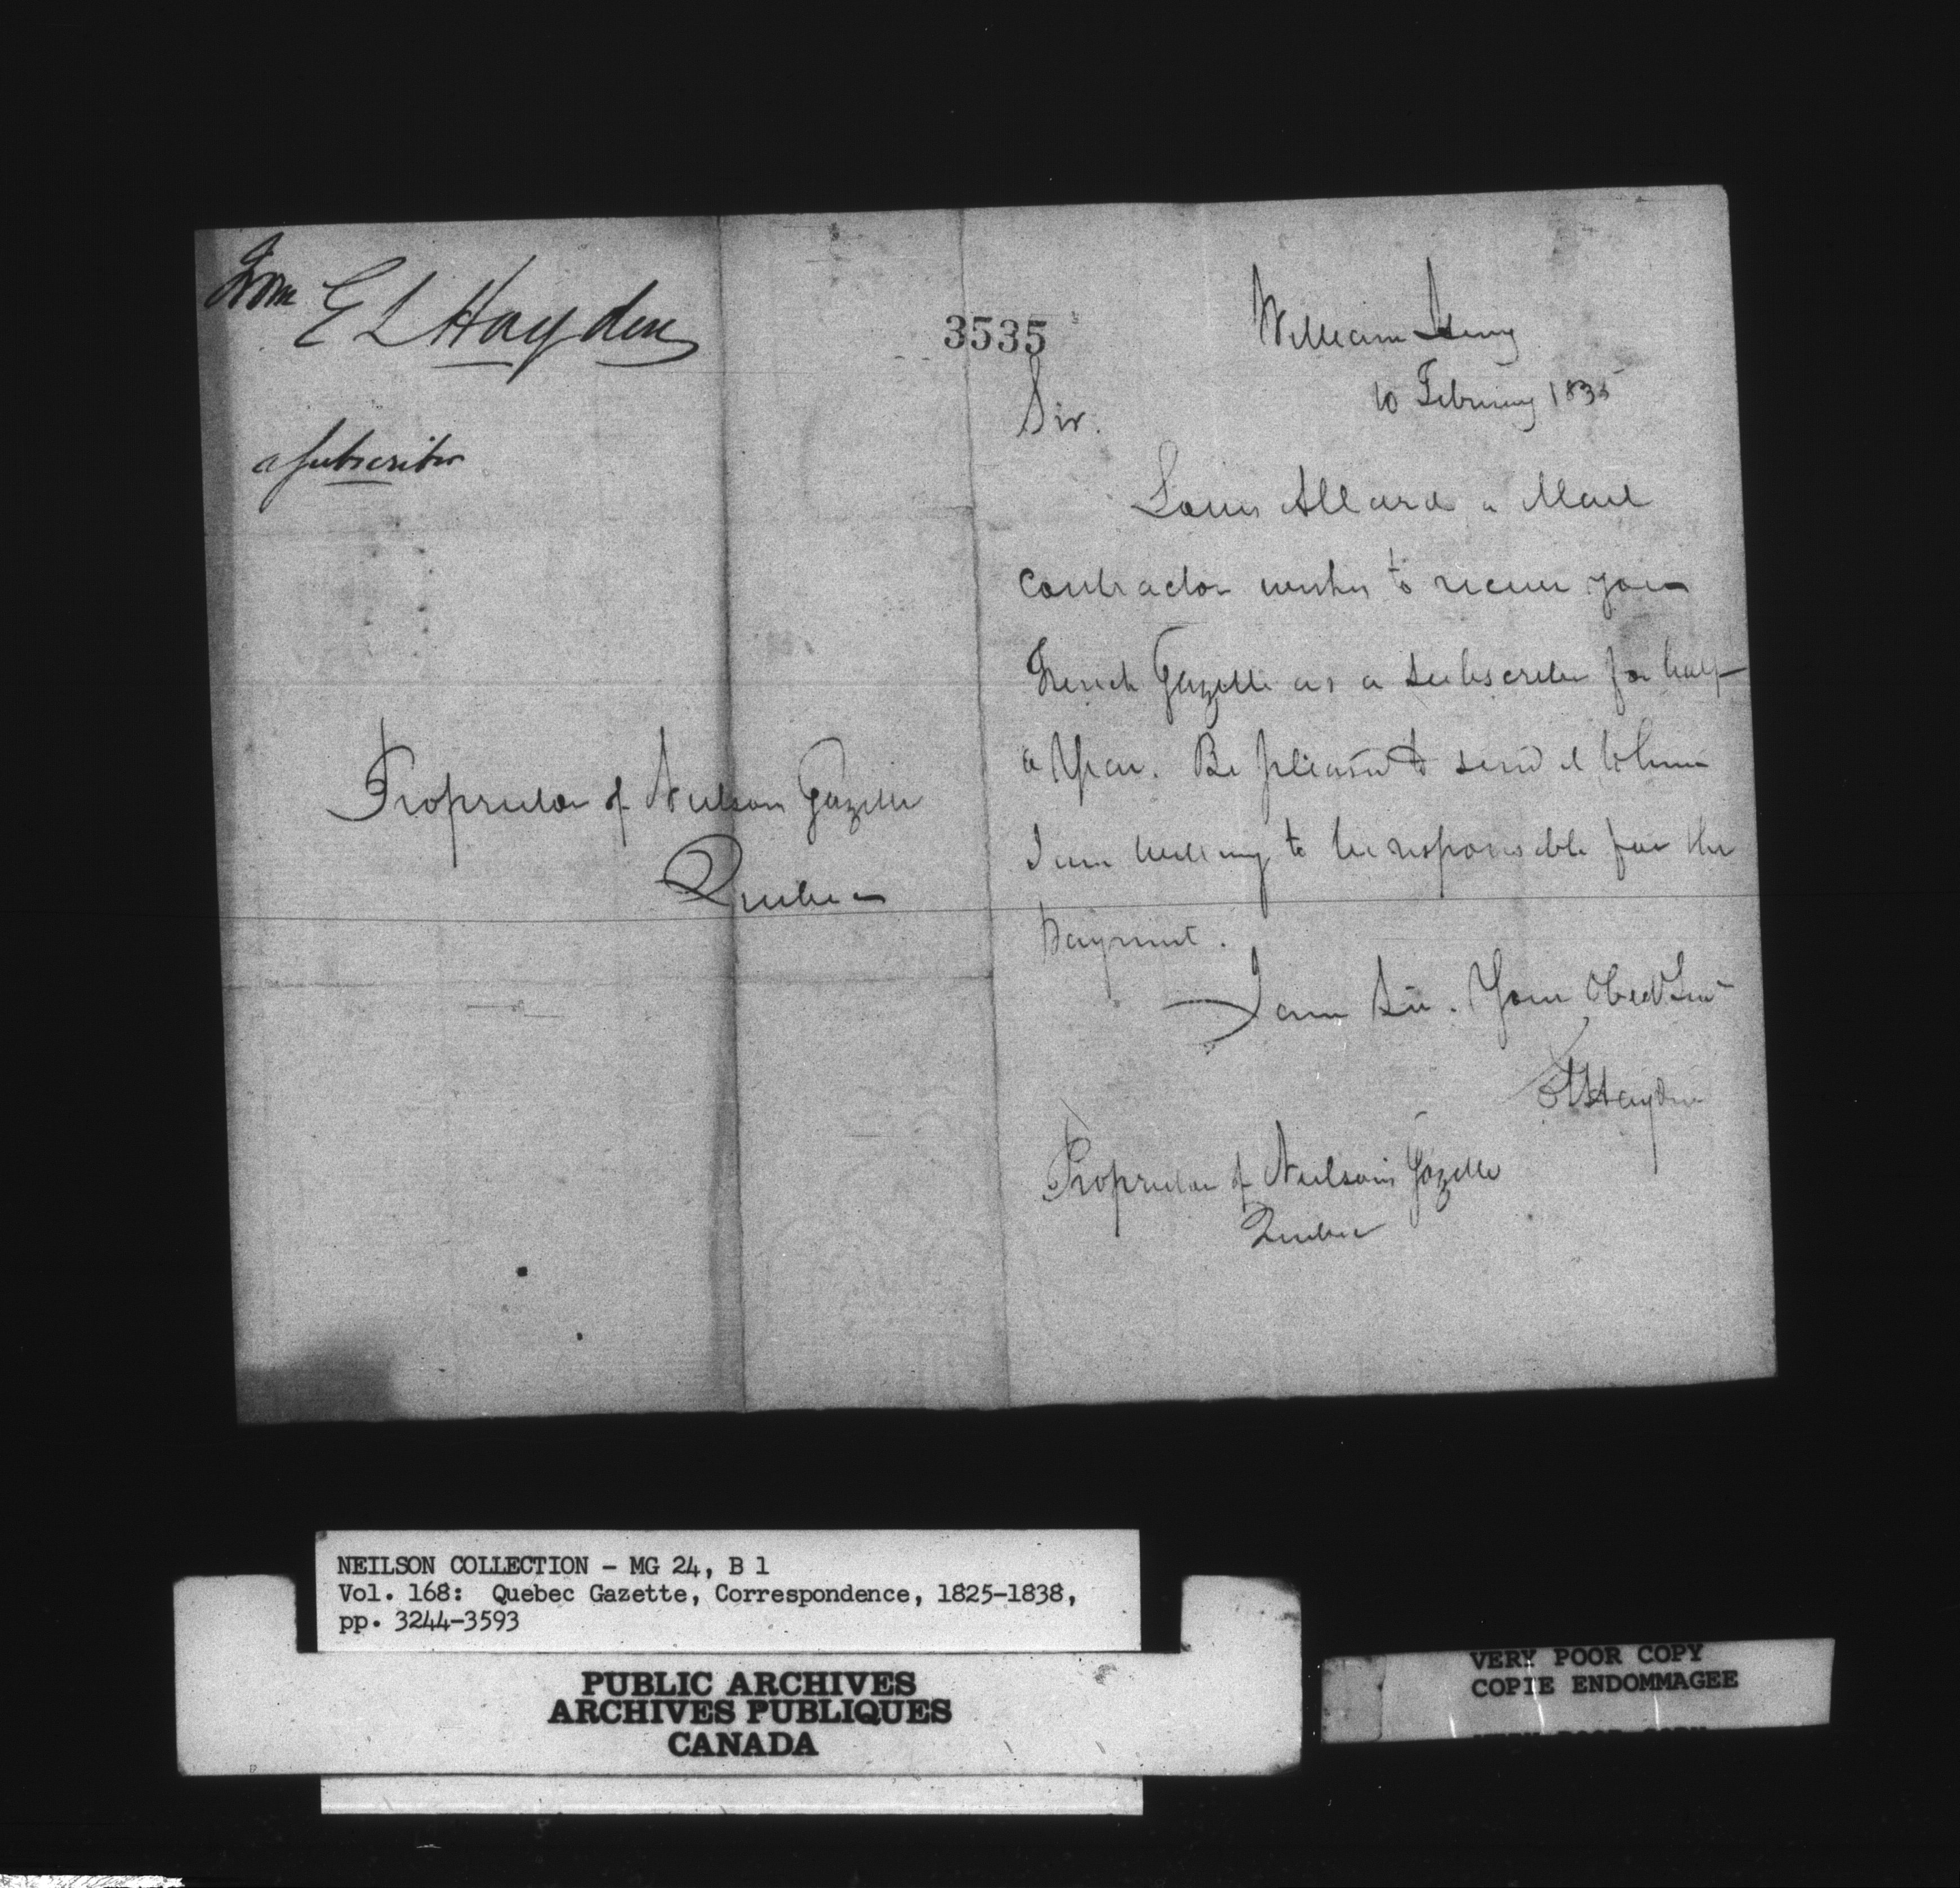 From E L Hayden
a subscriber
Proprietor of Neilsons Gazette
Quebec
3535
William Henry
10 February 1835
Sir.
Louis Allard a Mail
Contractor wishes to receive your
French Gazette as a subscriber for half
a Year. Be pleased to send it to him
I am willing to be responsible for the
payment.
I am Sir. Your Obedt Servt
E L Hayden
Proprietor of Neilson's Gazette
Quebec
NEILSON COLLECTION - MG 24, B 1
Vol. 168: Quebec Gazette, Correspondence, 1825-1838,
pp. 3244-3593
PUBLIC ARCHIVES
ARCHIVES PUBLIQUES
CANADA
VERY POOR COPY
COPIE ENDOMMAGEE
VERY POOR COPY